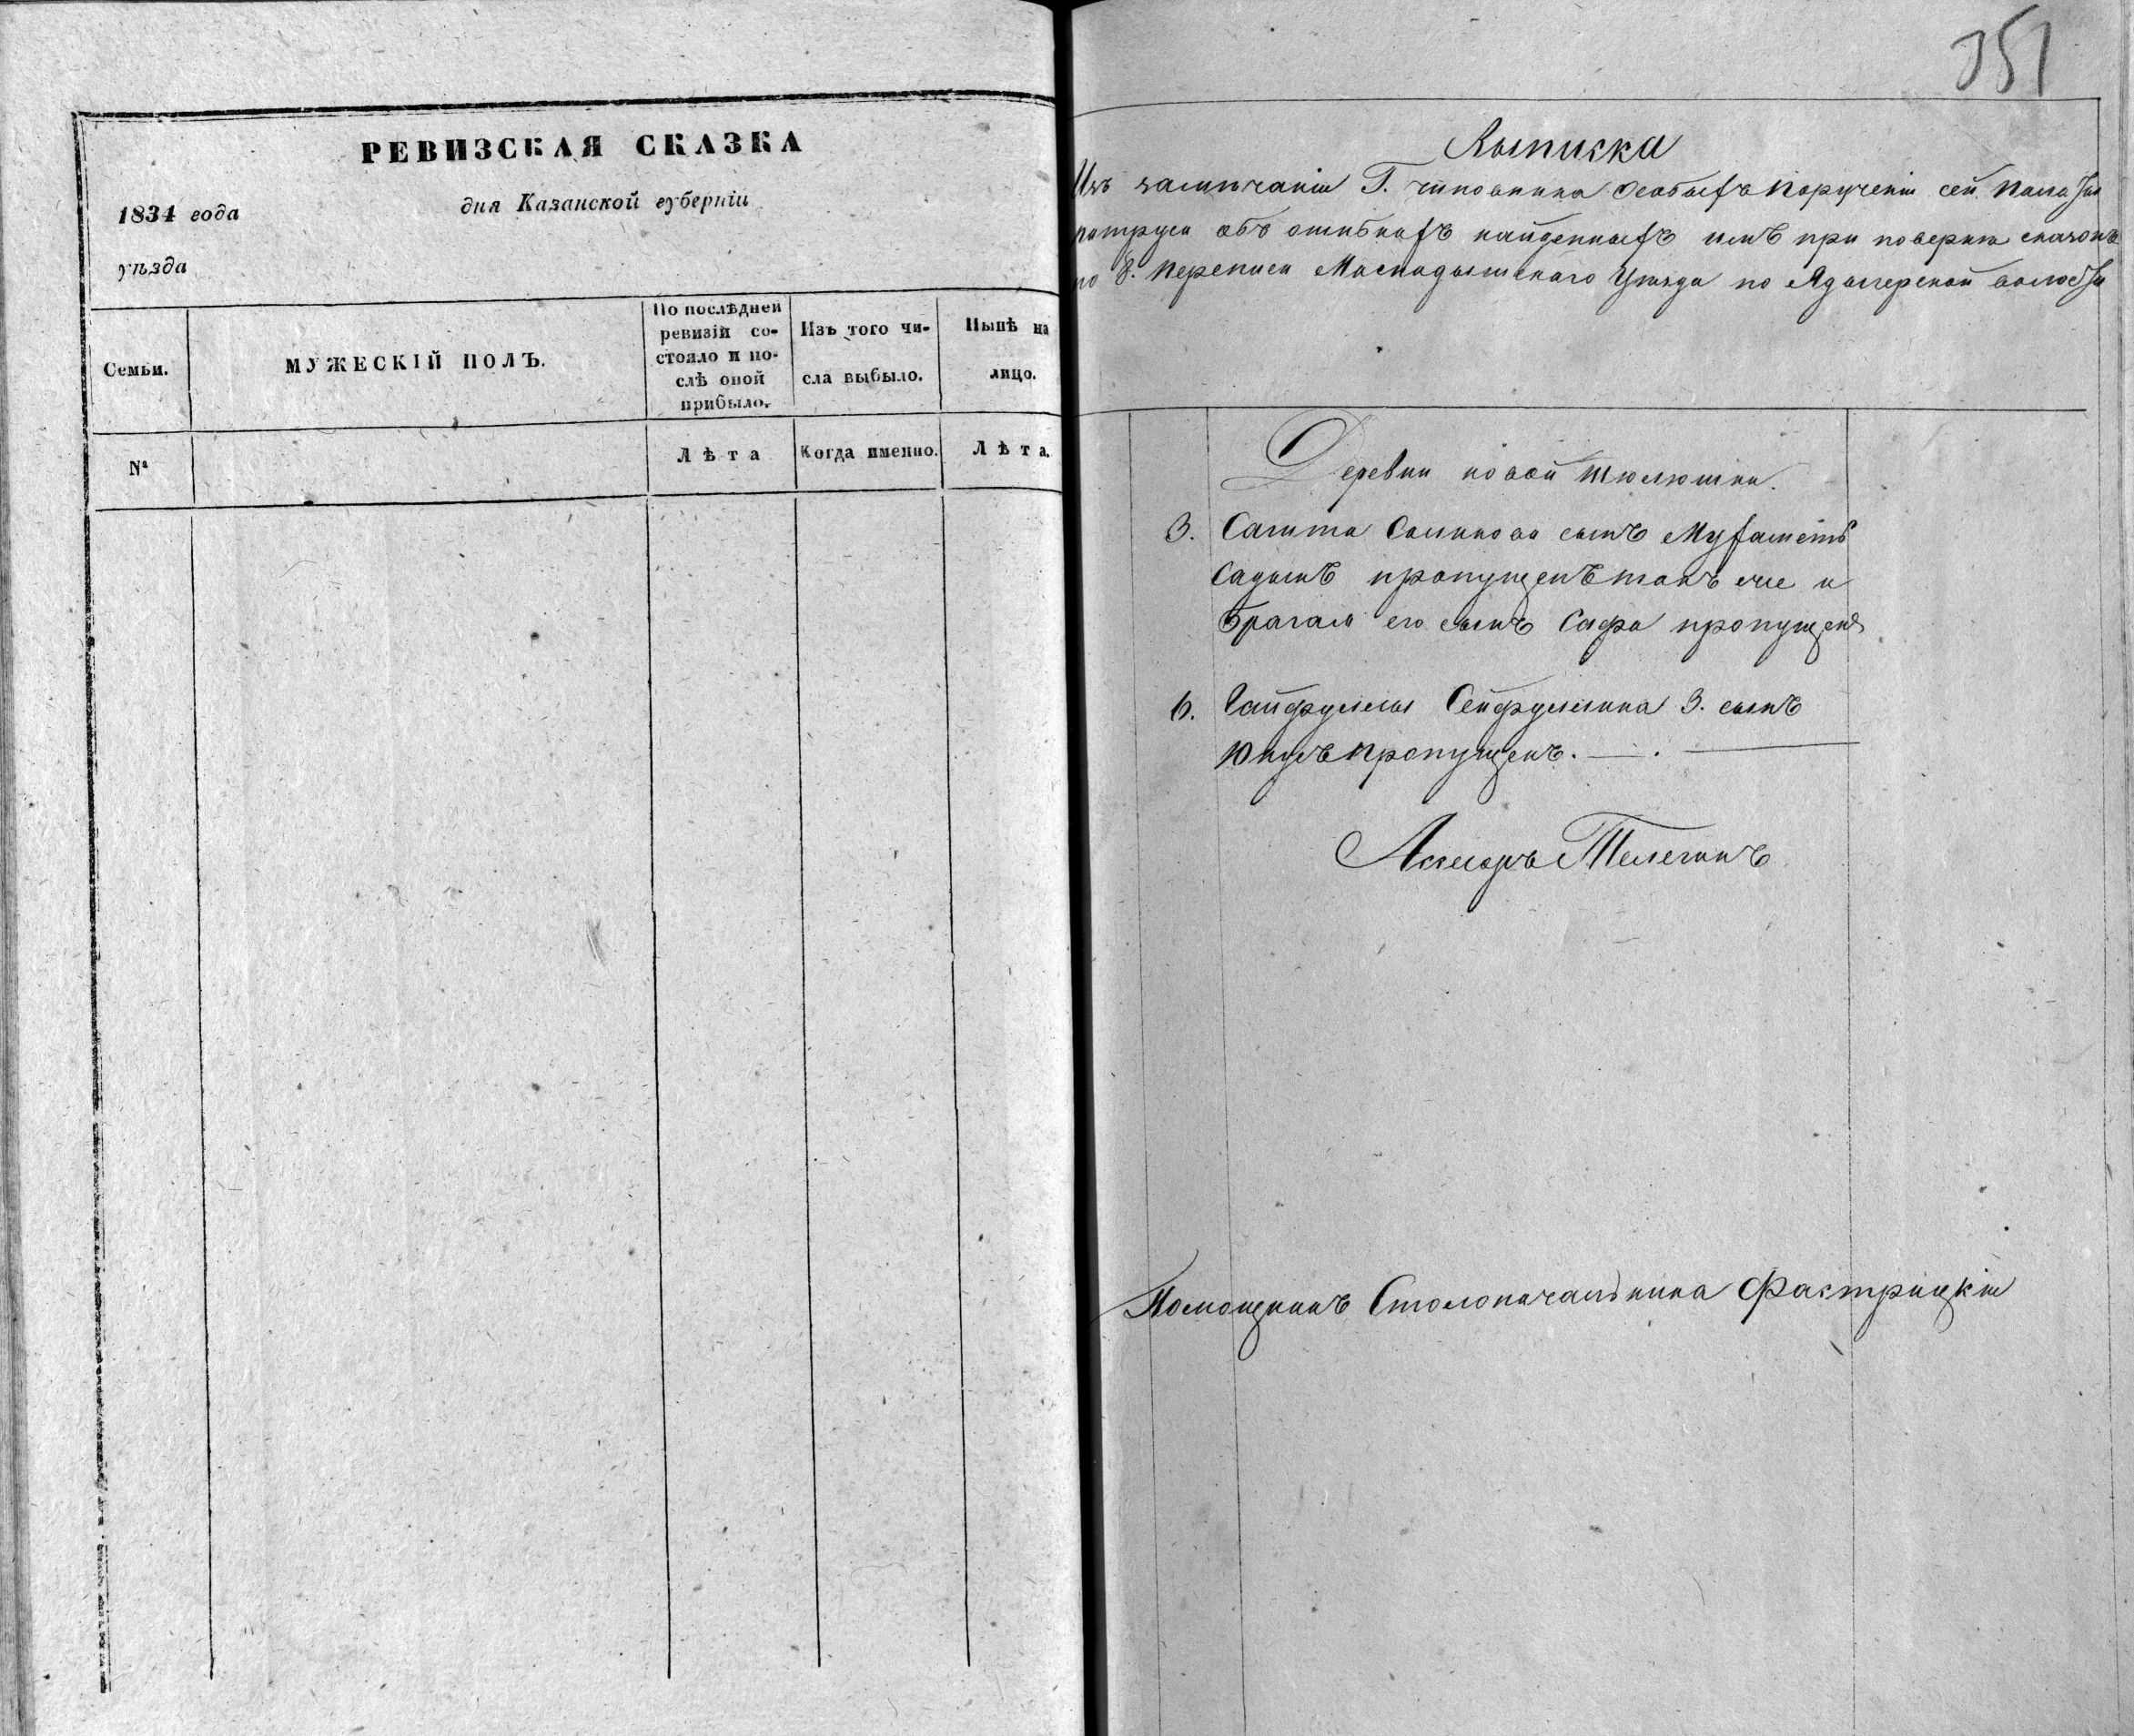 РЕВИЗСКАЯ СКАЗКА
1834 года дня Казанской губерніи
уѣзда
Семьи.
МУЖЕСКІЙ ПОЛЪ.
По послѣдней
ревизіи со-
стояло и по-
слѣ оной
прибыло.
Изъ того чи-
сла выбыло.
Нынѣ на
лицо.
№
Лѣта
Когда именно.
Лѣта.
351
Выписка
Изъ замѣчаніи Г. чиновника Особыхъ Порученіи сей
объ ошибкахъ найденныхъ имъ при поверкѣ сказокъ
по 8. переписи Мамадышского Уѣзда по Ядыгерской волости
Деревни новой
3. Сагита Салихова сынъ Мухаметъ
Садыкъ пропущенъ такъ же и
брата его сынъ Сафа пропущенъ
6. Гайфуллы Сейфуллина 3. сынъ
Юнусъ пропущенъ.
Асесоръ Телегинъ
Помощникъ Столоначальника